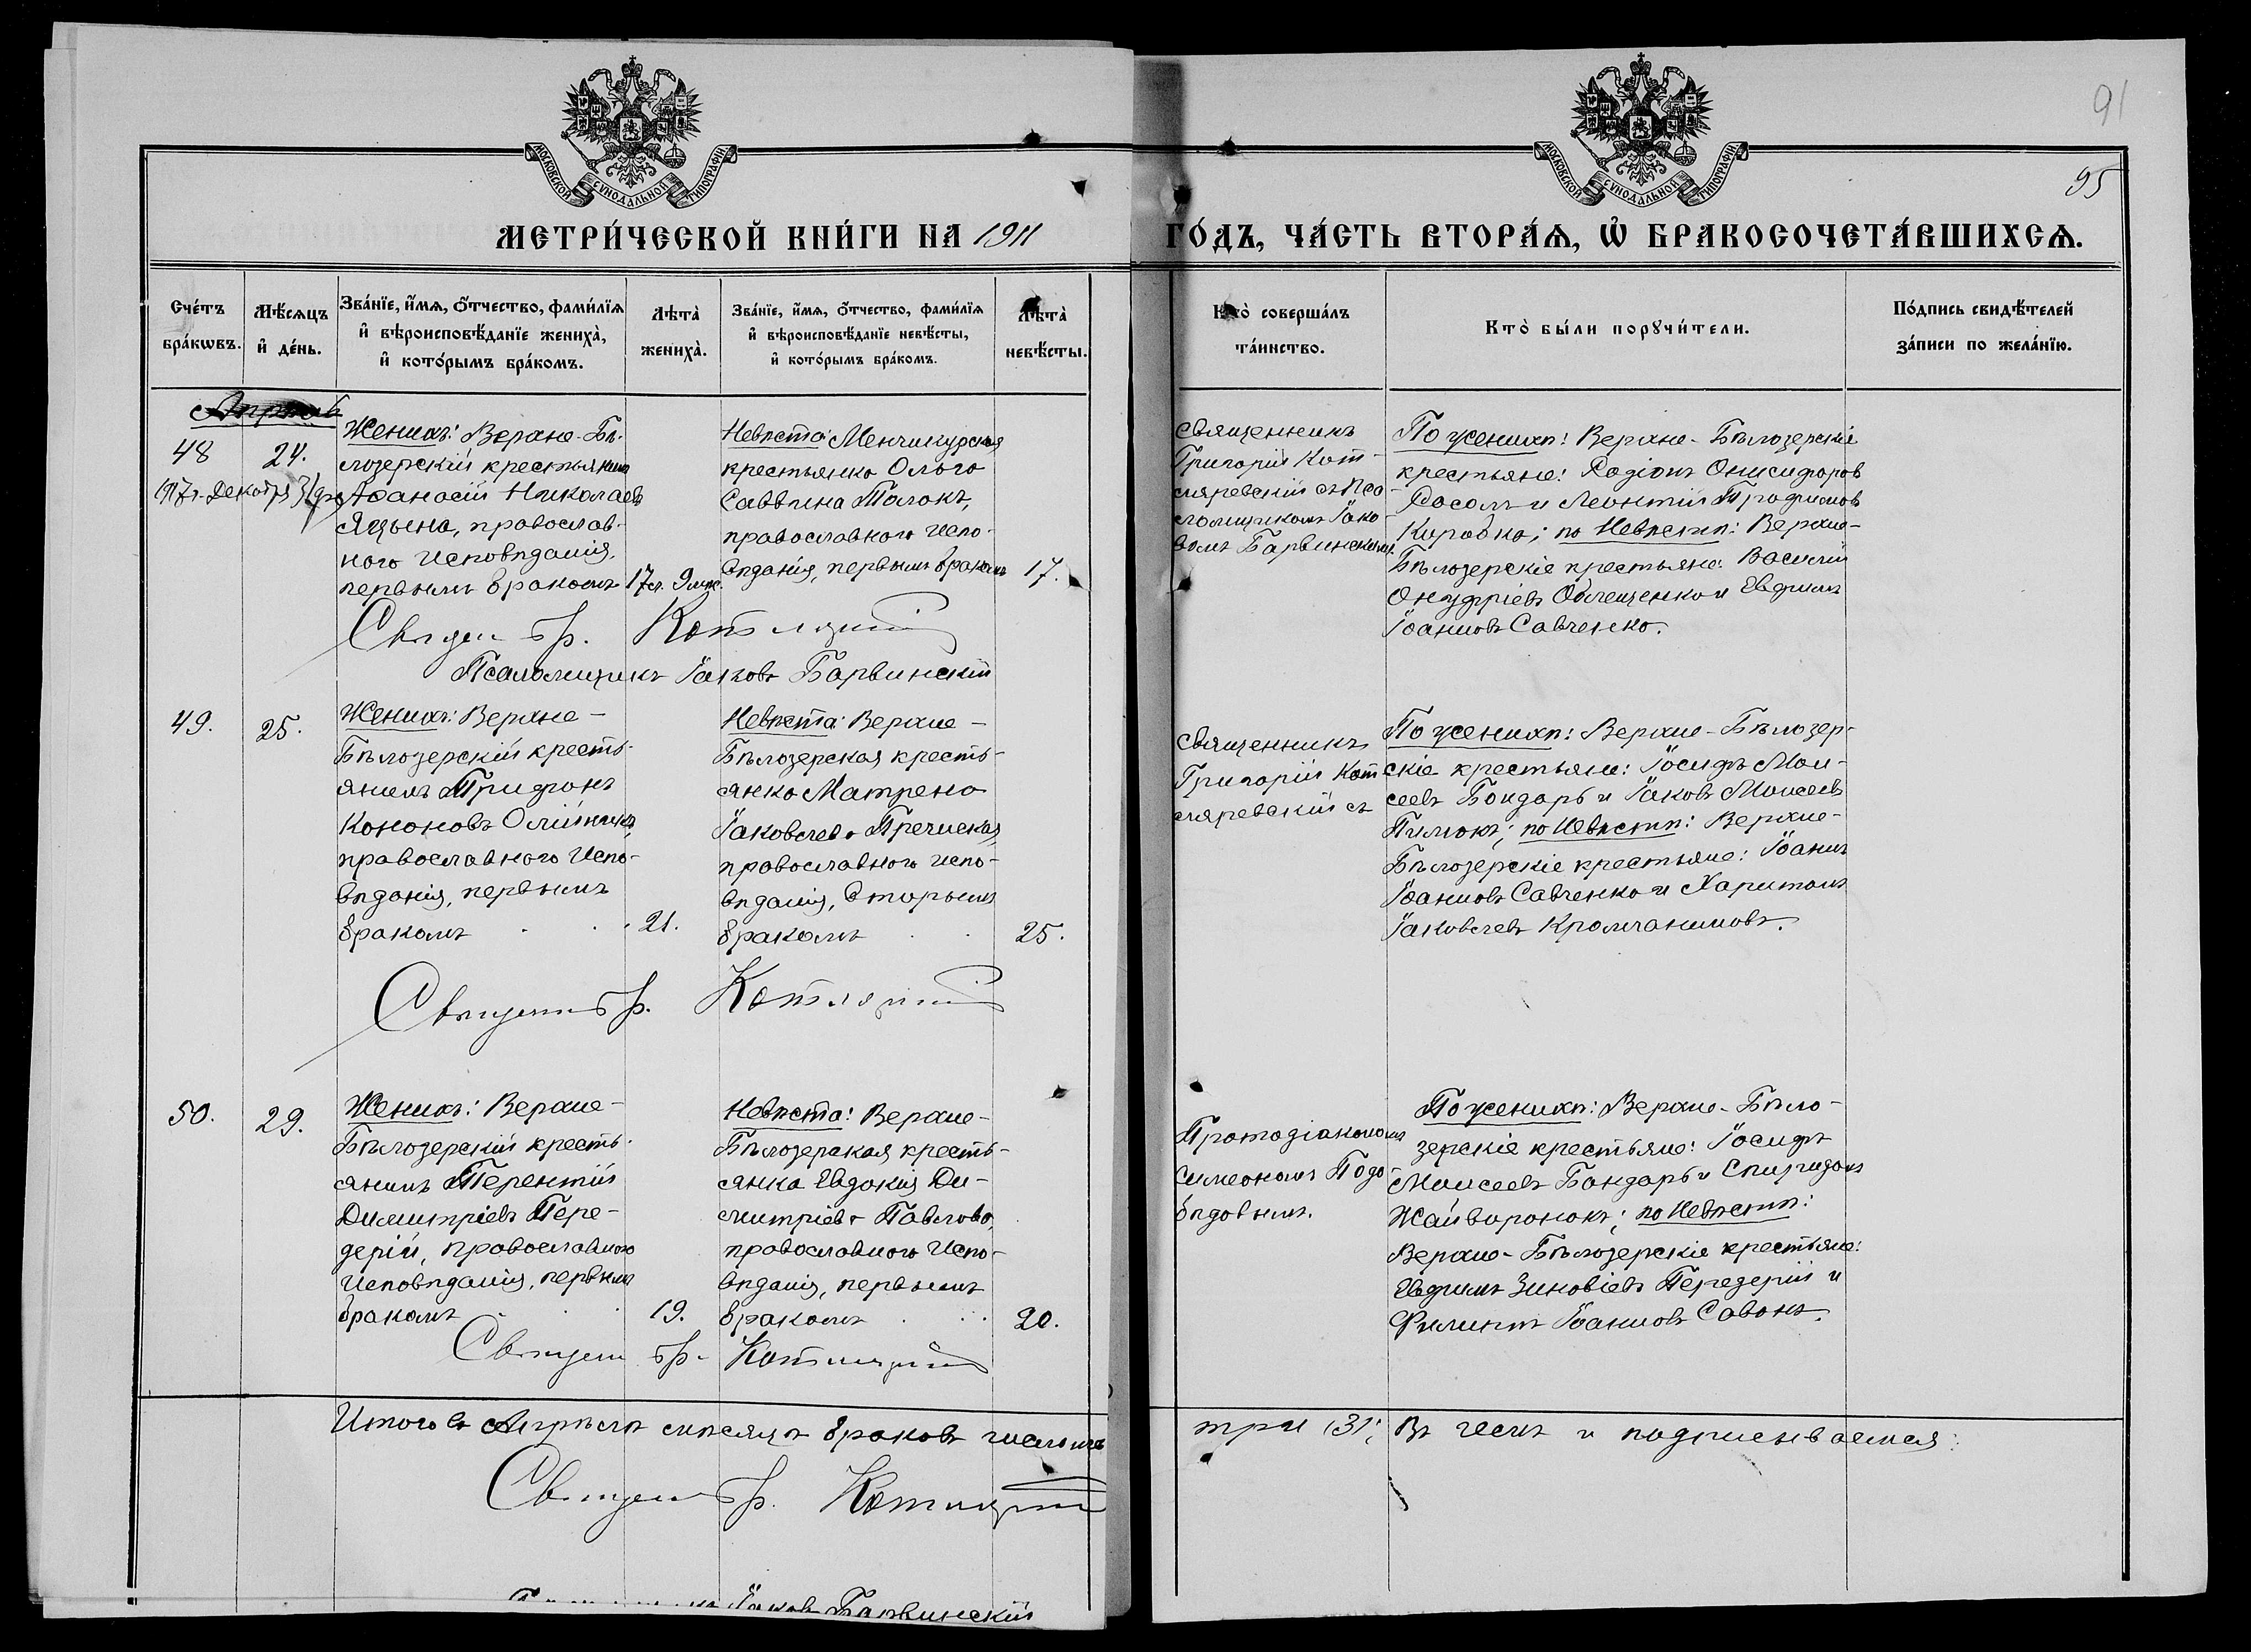 91
95
МОСКОВСКОЙ СѴНОДАЛЬНОЙ ТИПОГРАФІИ
МОСКОВСКОЙ СѴНОДАЛЬНОЙ ТИПОГРАФІИ
МЕТРИ́ЧЕСКОЙ КНИ́ГИ НА 1911 ГО́ДЪ, ЧА́СТЬ ВТОРА́Ѧ, Ѡ БРАКОСОЧЕТА́ВШИХСѦ.
Сче́тъ
бра́кѡвъ.
Мѣ́сяцъ
и҆ де́нь.
Зва́нїе, и҆́мѧ, ѻ҆́тчество, фами́лїѧ
и҆ вѣроисповѣ́данїе жениха̀,
и҆ кото́рымъ бра́комъ.
Лѣта̀
жениха̀.
Зва́нїе, и҆́мѧ, ѻ҆́тчество, фами́лїѧ
и҆ вѣроисповѣ́данїе невѣ́сты,
и҆ кото́рымъ бра́комъ.
Лѣта̀
невѣ́сты.
Кто̀ соверша́лъ
та́инство.
Кто̀ бы́ли порꙋчи́тели.
По́дпись свидѣ́телей
за́писи по жела́нїю.
Апрѣль
48
24.
Женихъ: Верхне-Бѣ-
лозерскій крестьянинъ
Аѳанасій Николаевъ
Яцына, православ-
ного исповѣданія,
первымъ бракомъ
17 л. 9 мѣс.
Невѣста: Менчикурская
крестьянка Ольга
Саввина Толокъ,
православного испо-
вѣданія, первымъ бракомъ
17.
Священникъ
Григорій Кот-
ляревскій съ пса-
ломщикомъ Іако-
вомъ Барвинскимъ.
По женихѣ: Верхне-Бѣлозерскіе
крестьяне: Родіонъ Онисифоровъ
и Леонтій Трофимовъ
Коровка; по невѣстѣ: Верхне-
Бѣлозерскіе крестьяне: Василій
Онуфріевъ Облещенко и Евфимъ
Іоанновъ Савченко.
Священ. Гр. Котляревскій
Псаломщикъ Іаковъ Барвинскій
49.
25.
Женихъ: Верхне-
Бѣлозерскій кресть-
янинъ Трифонъ
Кононовъ Олійникъ,
православного испо-
вѣданія, первымъ
бракомъ
21.
Невѣста: Верхне-
Бѣлозерская кресть-
янка Матрена
Іаковлева
православного испо-
вѣданія, вторымъ
бракомъ
25.
Священникъ
Григорій Кот-
ляревскій съ
По женихѣ: Верхне-Бѣлозер-
скіе крестьяне: Іосифъ Мои-
сеевъ Бондарь и Іаковъ Моисеевъ
по невѣстѣ: Верхне-
Бѣлозерскіе крестьяне: Іоаннъ
Іоанновъ Савченко и Харитонъ
Іаковлевъ
Священ. Гр. Котляревскій
50.
29.
Женихъ: Верхне-
Бѣлозерскій кресть-
янинъ Терентій
Димитріевъ Пере-
дерій, православного
исповѣданія, первымъ
бракомъ
19.
Невѣста: Верхне-
Бѣлозерская кресть-
янка Евдокія Ди-
митріева Павлова,
православного испо-
вѣданія, первымъ
бракомъ
20.
Протодіакономъ
Симеономъ Подо-
бѣдовымъ.
По женихѣ: Верхне-Бѣло-
зерскіе крестьяне: Іосифъ
Моисеевъ Бондарь и Спиридонъ
Жайворонокъ; по невѣстѣ:
Верхне-Бѣлозерскіе крестьяне:
Евфимъ Зиновіевъ Передерій и
Филиппъ Іоанновъ Савонъ.
Священ. Гр. Котляревскій
Итого въ Апрѣлѣ мѣсяцѣ браковъ числомъ три (3), въ чемъ и подписываемся:
Священ. Гр. Котляревскій
Іаковъ Барвинскій